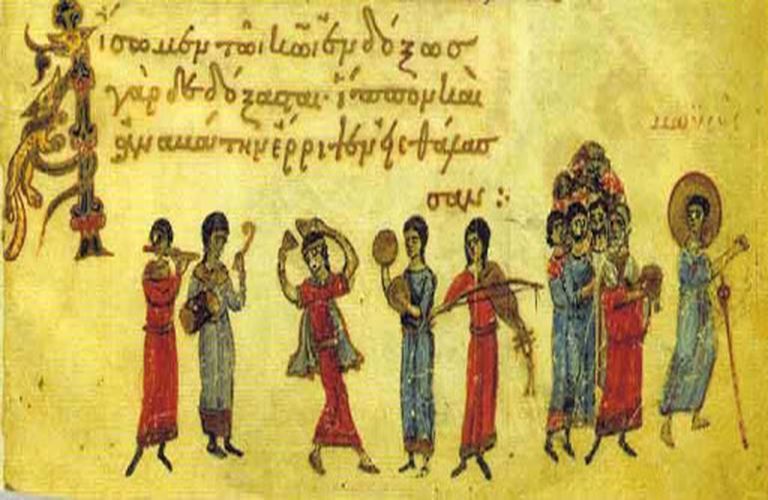 Αἴσωμεν τῶι κ̅ω̅ι ἐνδόξωσ
γὰρ δεδόξασται· ἵππον καὶ
ἀναβάτην ἔρριψεν εἰς θάλασ
σαν :